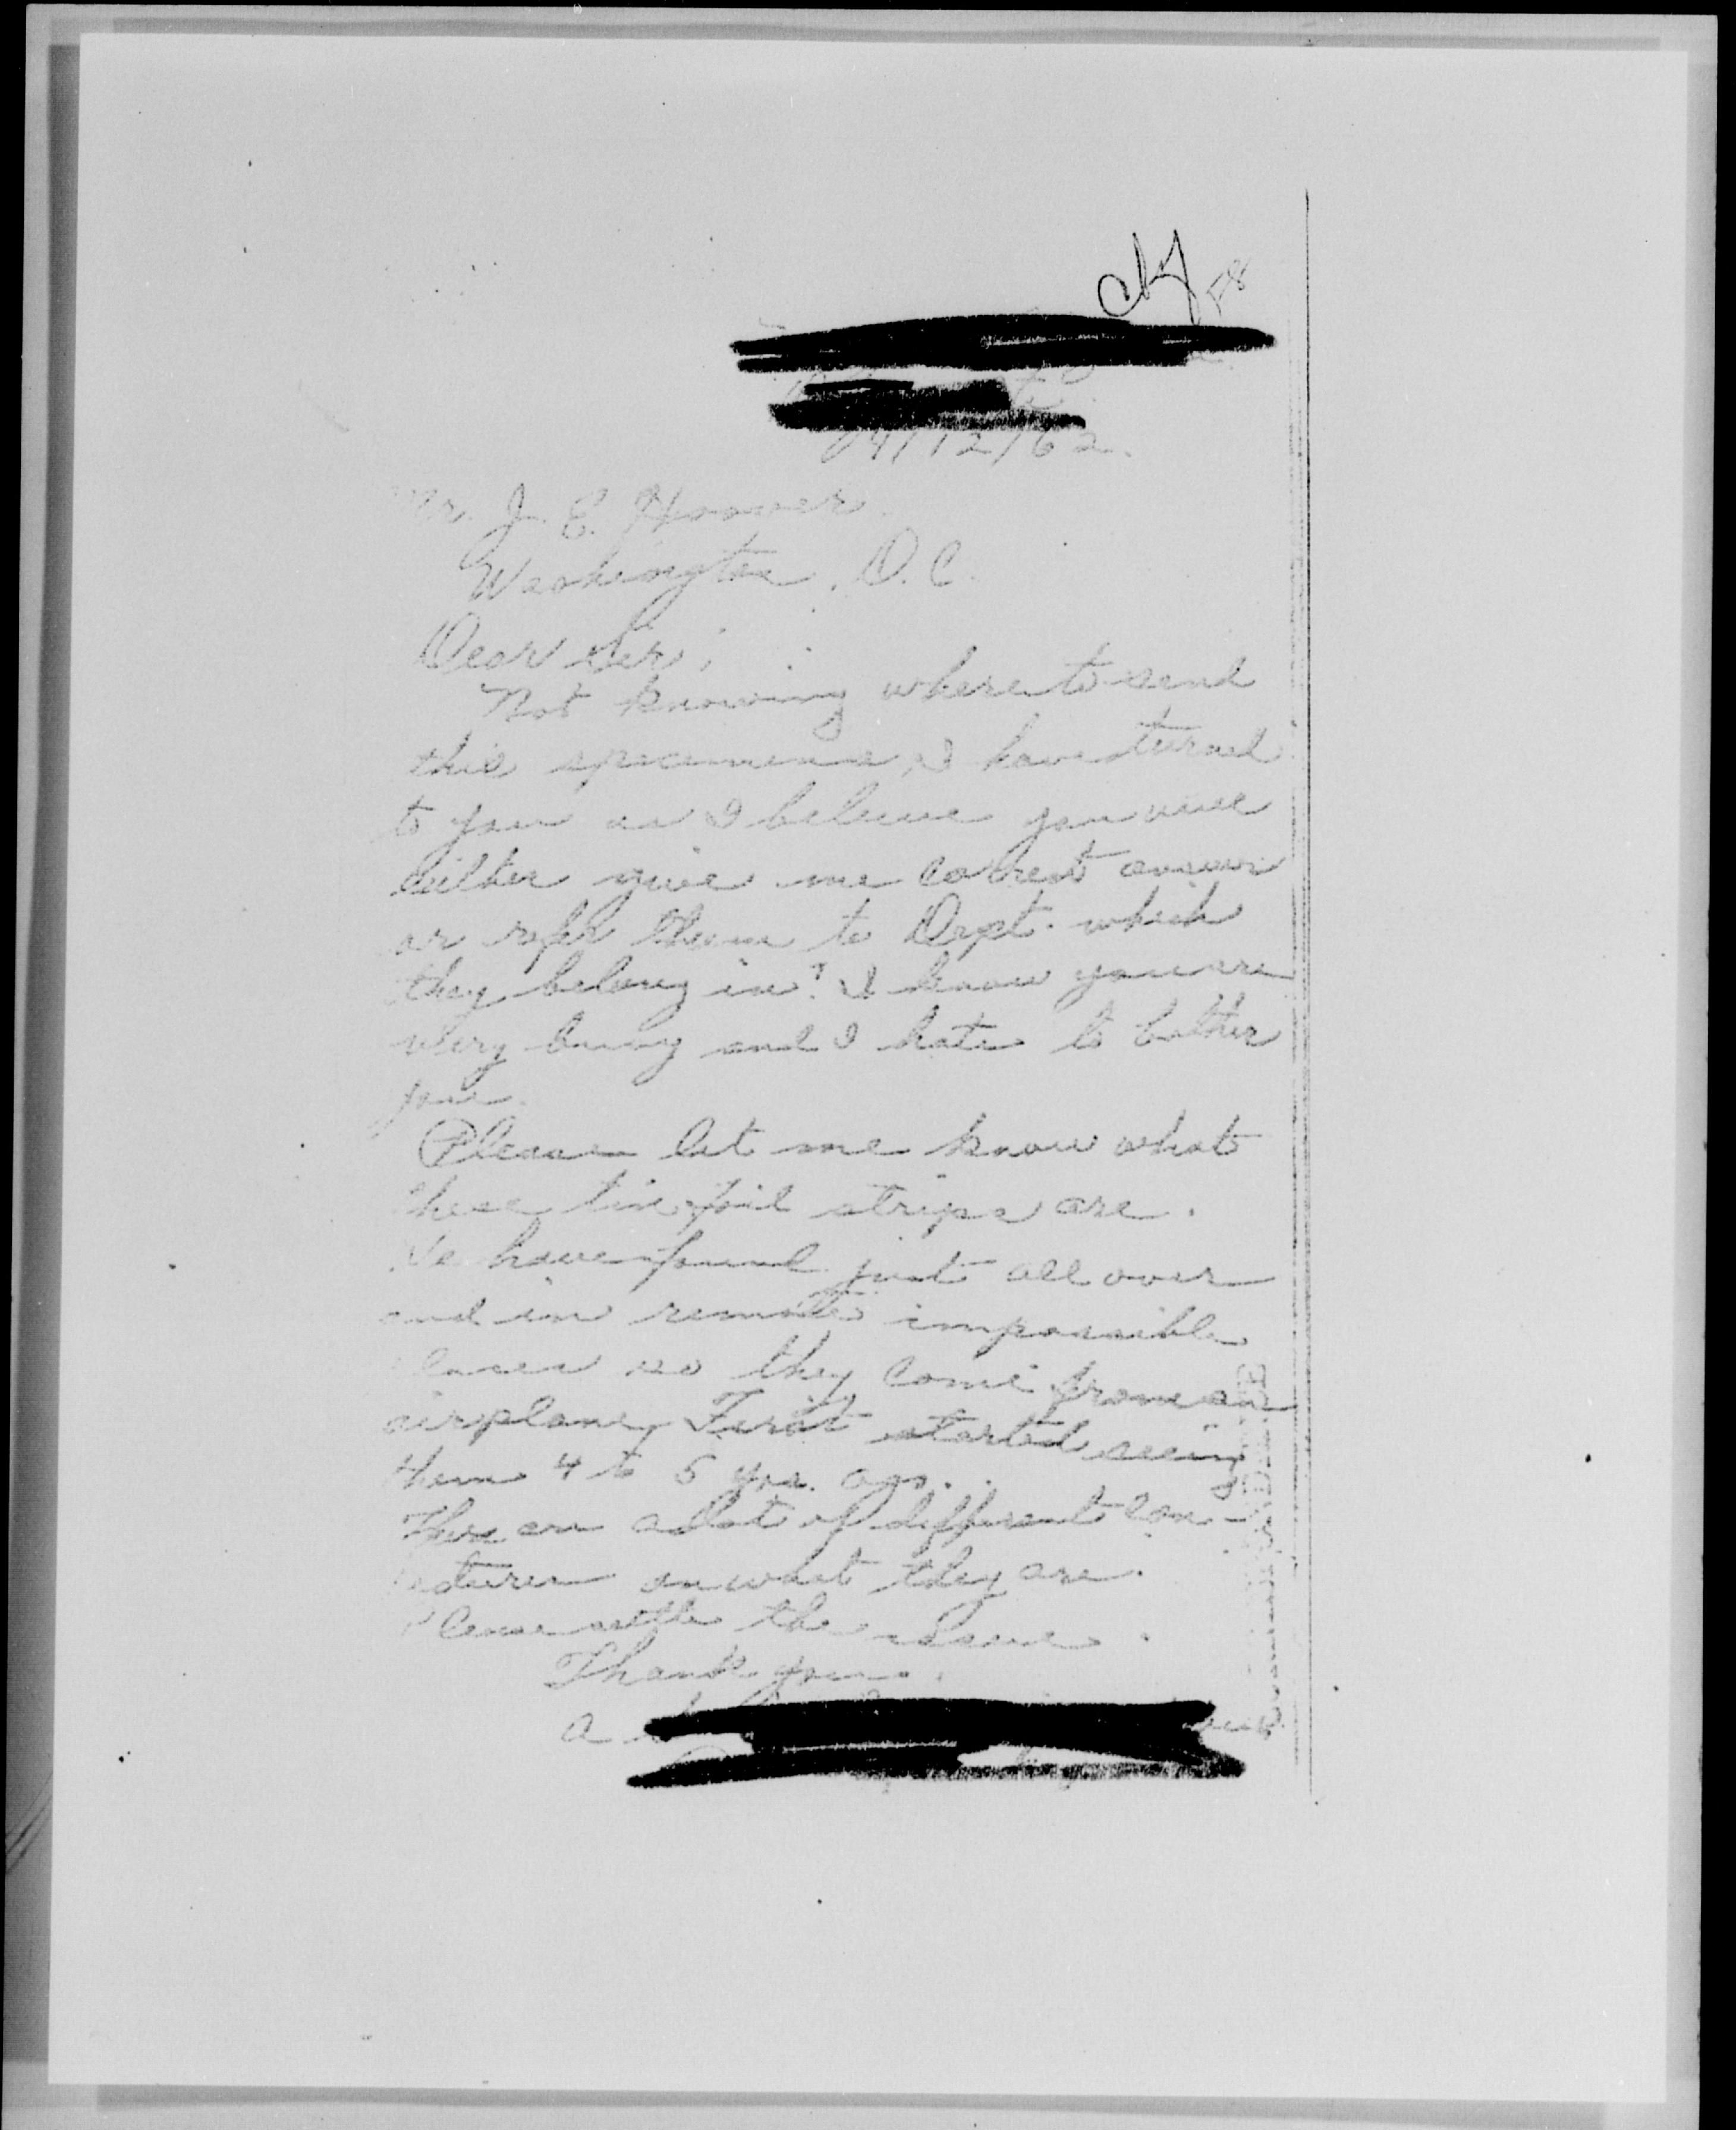 /12/62.
Mr. J. E. Hoover.
Washington, D.C.
Dear Sir;
Not knowing where to send
this specimens, I have turned
to you as I believe you will
either give me correct answer
or refer them to Dept. which
they belong in. I know you are
very busy and I hate to bother
you.
Please let me know what
these tin foil strips are.
We have found just all over
and in remote impossible
places so they come from an
airplane, First started seeing
them 4 to 5 yrs. ago.
There are a lot of different con-
jectures on what they are.
Please settle the issue.
Thank you.
a